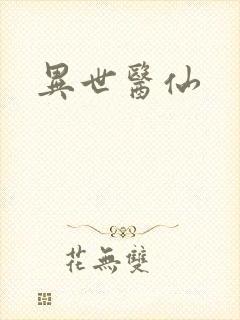 異世醫仙
花無雙